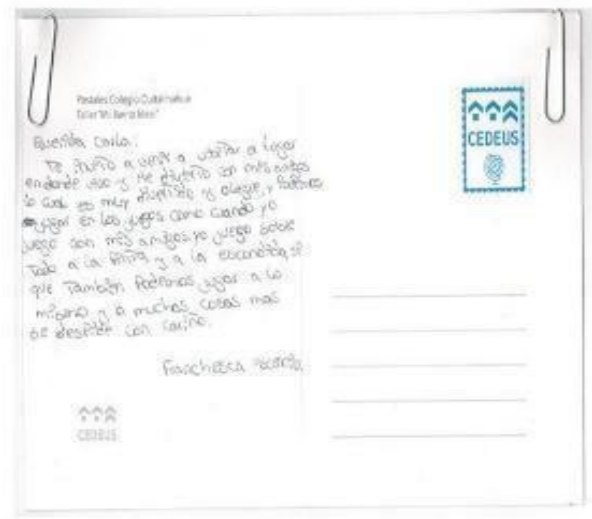 Postales Colegio Cultahuatlue
Taller "Mi Barrio Ideal"
CEDEUS
Querida Carla:
Te invito a venir a visitar a lugar
en donde vivo y me divierto con mis amigos
lo cual es muy divertido y alegre, y Podremos
jugar en los juegos como cuando yo
juego con mis amigos yo juego sobre
todo a la Pinta y a la escondida, sé
que También Podremos jugar a lo
mismo y a muchas cosas mas
se despide con cariño.
Franchesca
CEDEUS